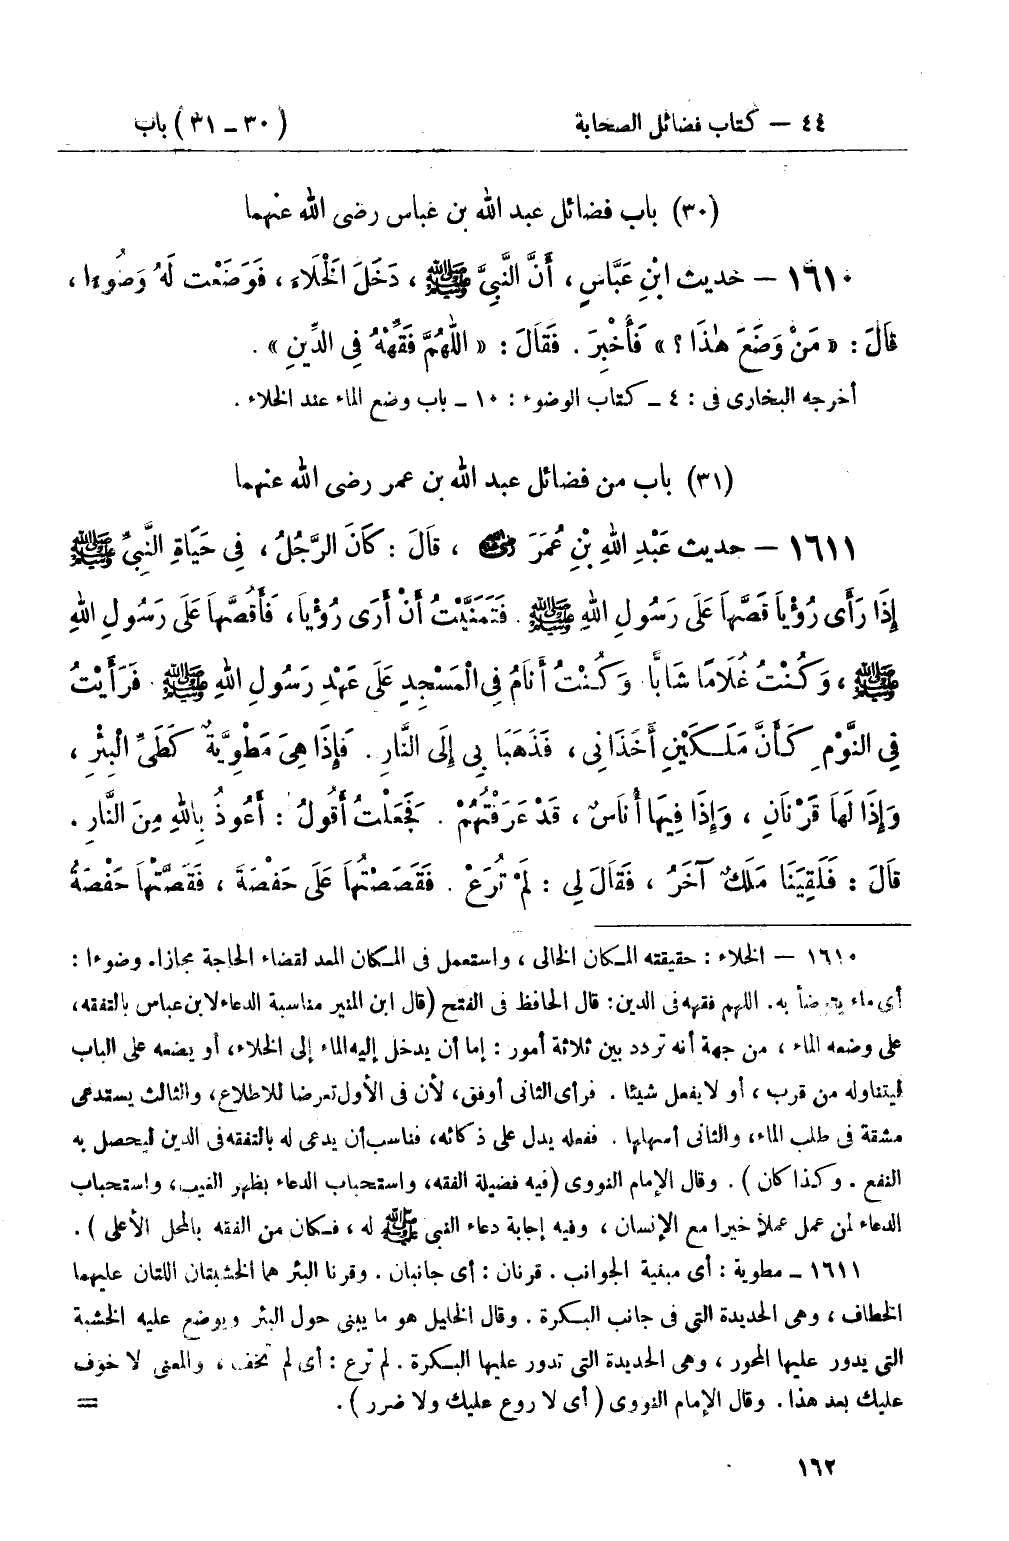 ٤٤ – كتاب فضائل الصحابة (٣٠ – ٣١) باب
(٣٠) باب فضائل عبد الله بن عباس رضى الله عنهما
١٦١٠ – حديث ابْنِ عَبَّاسٍ ، أَنَّ النَّبِيَّ ﷺ ، دَخَلَ الْخَلَاءَ ، فَوَضَعْتُ لَهُ وَضُوءًا ،
قَالَ : « مَنْ وَضَعَ هٰذَا ؟ » فَأُخْبِرَ . فَقَالَ : « اللَّهُمَّ فَقِّهْهُ فِي الدِّينِ » .
أخرجه البخارى فى : ٤ – كتاب الوضوء : ١٠ – باب وضع الماء عند الخلاء .
(٣١) باب من فضائل عبد الله بن عمر رضى الله عنهما
١٦١١ – حديث عَبْدِ اللهِ بْنِ عُمَرَ رضي الله عنه ، قَالَ : كَانَ الرَّجُلُ ، فِي حَيَاةِ النَّبِيِّ ﷺ
إِذَا رَأَى رُؤْيَا قَصَّهَا عَلَى رَسُولِ اللهِ ﷺ . فَتَمَنَّيْتُ أَنْ أَرَى رُؤْيَا ، فَأَقُصَّهَا عَلَى رَسُولِ اللهِ
ﷺ ، وَكُنْتُ غُلَامًا شَابًّا . وَكُنْتُ أَنَامُ فِي الْمَسْجِدِ عَلَى عَهْدِ رَسُولِ اللهِ ﷺ . فَرَأَيْتُ
فِي النَّوْمِ كَأَنَّ مَلَكَيْنِ أَخَذَانِي ، فَذَهَبَا بِي إِلَى النَّارِ . فَإِذَا هِيَ مَطْوِيَّةٌ كَطَيِّ الْبِئْرِ ،
وَإِذَا لَهَا قَرْنَانِ ، وَإِذَا فِيهَا أُنَاسٌ ، قَدْ عَرَفْتُهُمْ . فَجَعَلْتُ أَقُولُ : أَعُوذُ بِاللهِ مِنَ النَّارِ .
قَالَ : فَلَقِيَنَا مَلَكٌ آخَرُ ، فَقَالَ لِي : لَمْ تُرَعْ . فَقَصَصْتُهَا عَلَى حَفْصَةَ ، فَقَصَّتْهَا حَفْصَةُ
١٦١٠ – الخلاء : حقيقته المكان الخالى ، واستعمل فى المكان المعد لقضاء الحاجة مجازا. وضوءا :
أى ماء يتوضأ به. اللهم فقهه فى الدين: قال الحافظ فى الفتح (قال ابن المنير مناسبة الدعاء لابن عباس بالتفقه،
على وضعه الماء ، من جهة أنه تردد بين ثلاثة أمور : إما أن يدخل إليه الماء إلى الخلاء، أو يضعه على الباب
ليتناوله من قرب ، أو لا يفعل شيئا . فرأى الثانى أوفق، لأن فى الأول تعرضا للاطلاع، والثالث يستدعى
مشقة فى طلب الماء، والثانى أسهلها . ففعله يدل على ذكائه، فناسب أن يدعى له بالتفقه فى الدين ليحصل به
النفع . وكذا كان ) . وقال الإمام النووى (فيه فضيلة الفقه، واستحباب الدعاء بظهر الغيب، واستحباب
الدعاء لمن عمل عملا خيرا مع الإنسان ، وفيه إجابة دعاء النبى ﷺ له ، فكان من الفقه بالمحل الأعلى ) .
١٦١١ – مطوية : أى مبنية الجوانب . قرنان : أى جانبان . وقرنا البئر هما الخشبتان اللتان عليهما
الخطاف ، وهى الحديدة التى فى جانب البكرة . وقال الخليل هو ما يبنى حول البئر ويوضع عليه الخشبة
التى يدور عليها المحور ، وهى الحديدة التى تدور عليها البكرة . لم ترع : أى لم تخف ، والمعنى لا خوف
عليك بعد هذا . وقال الإمام النووى ( أى لا روع عليك ولا ضرر ) . =
١٦٢